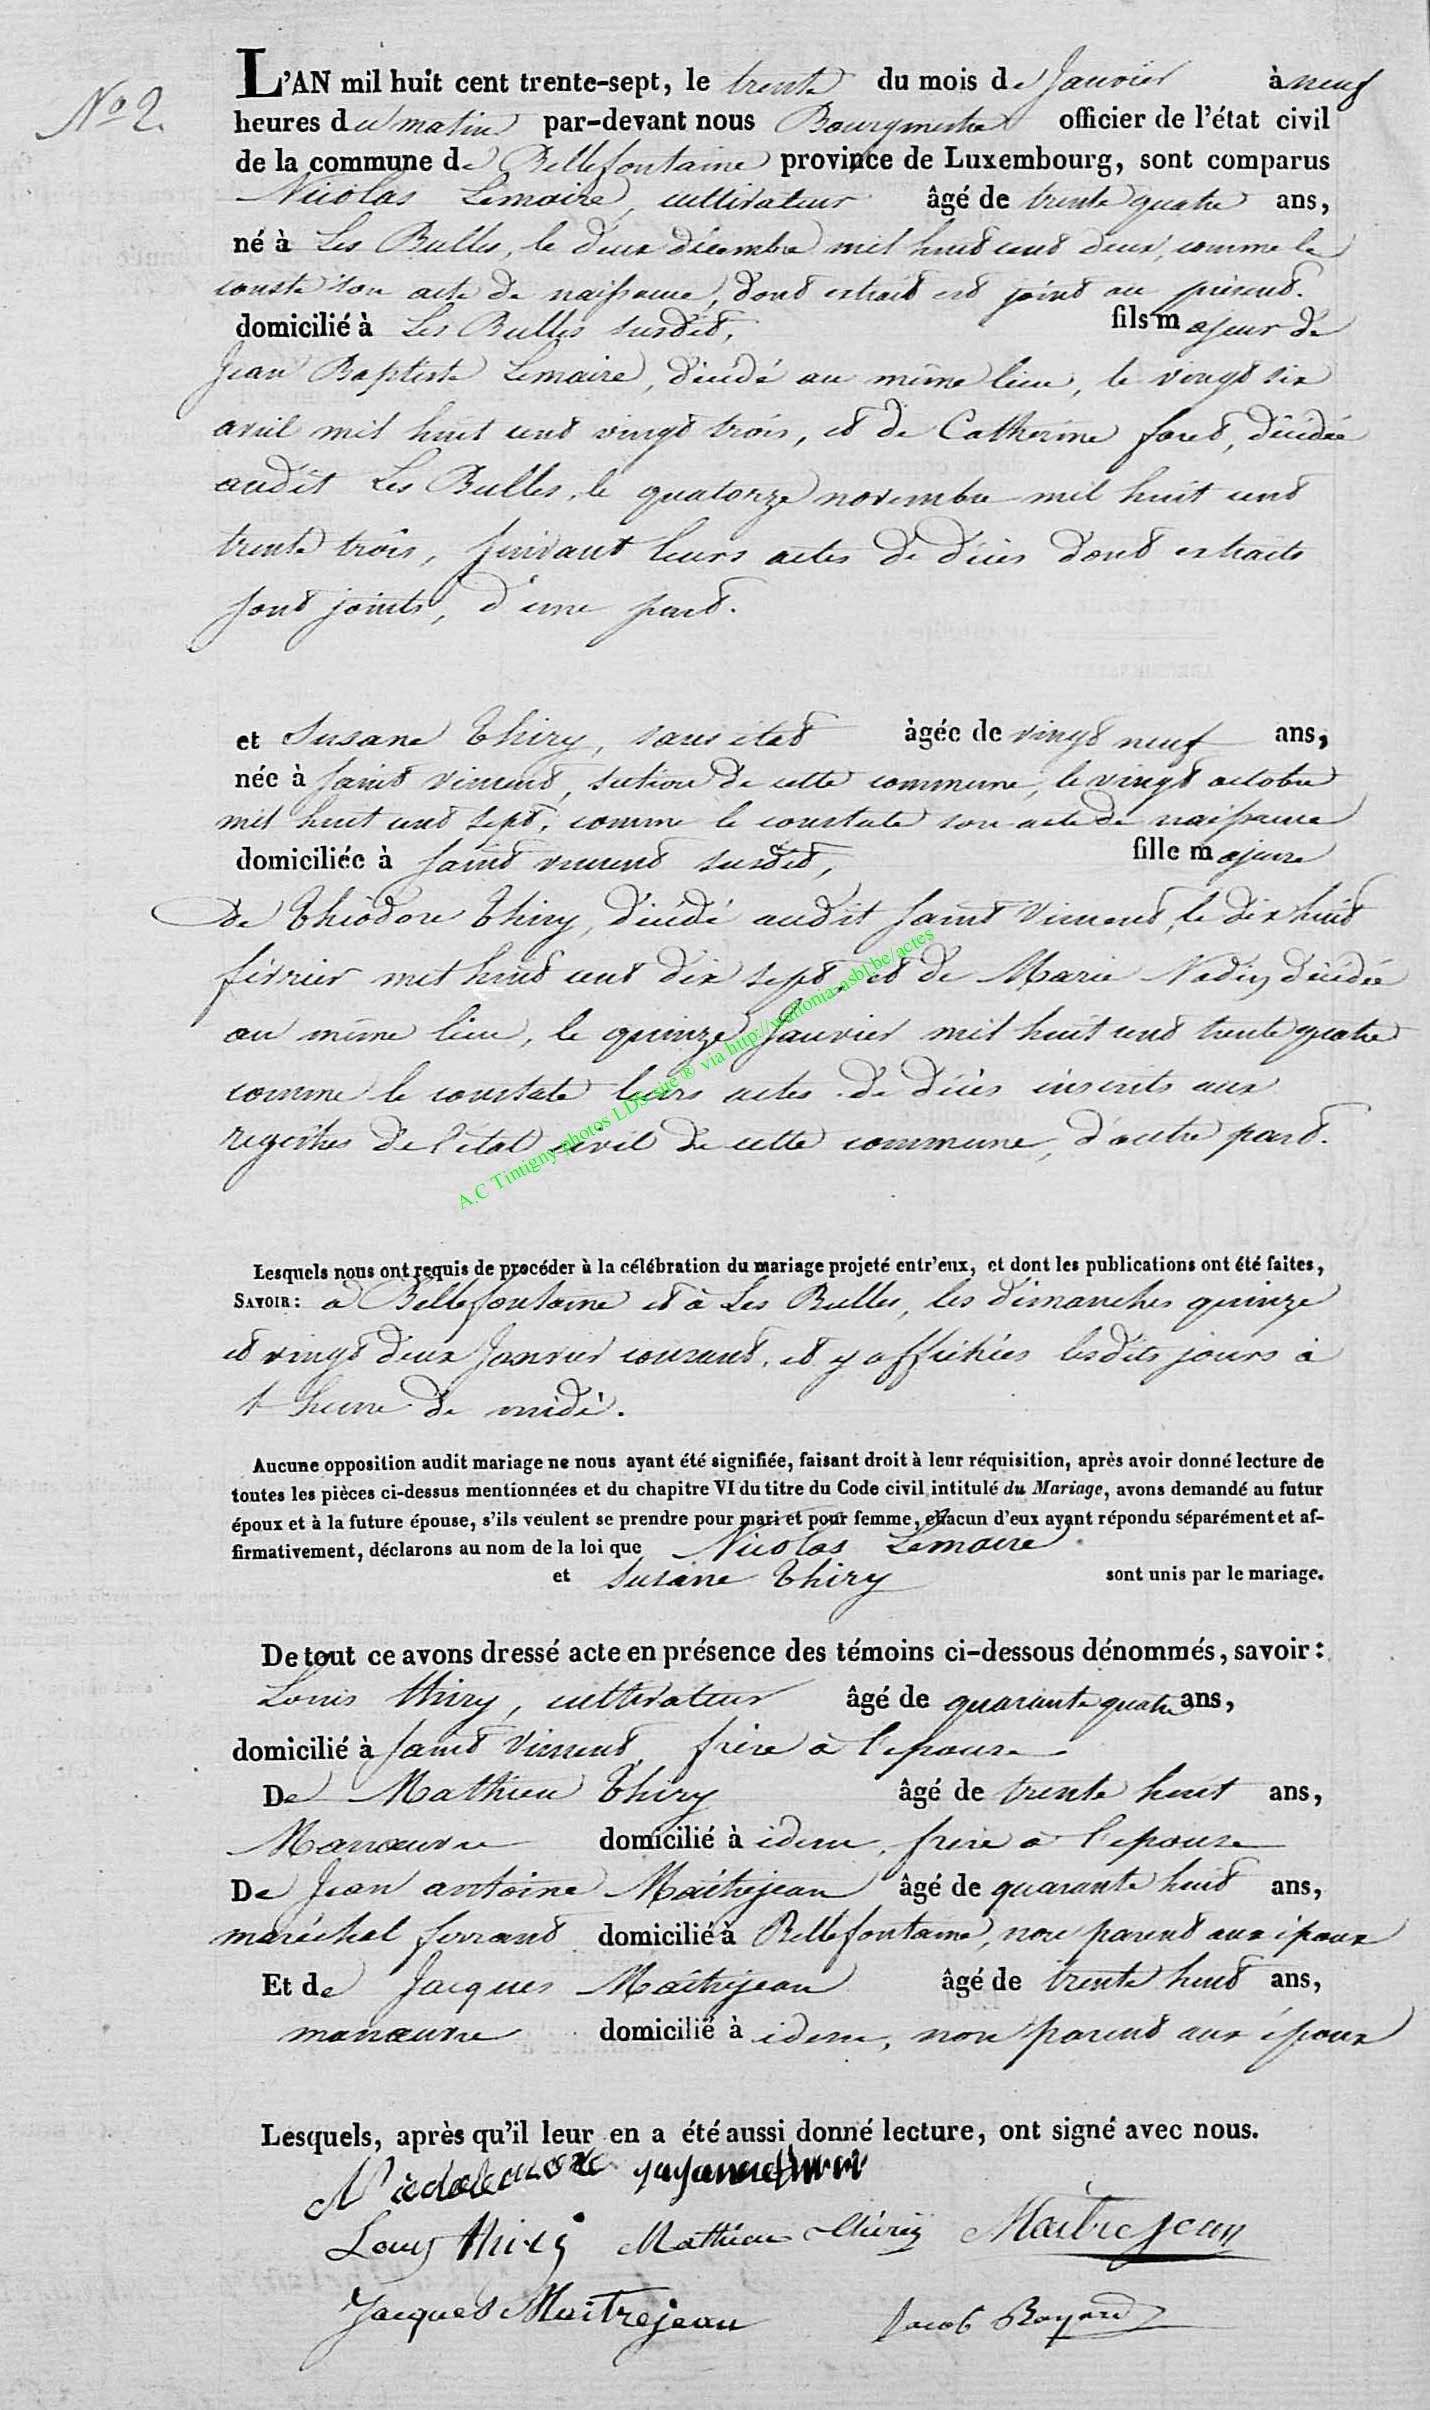 No 2.
L'AN mil huit cent trente-sept, le trente du mois de Janvier à neuf
heures du matin par-devant nous Bourgmestre officier de l'état civil
de la commune de Bellefontaine province de Luxembourg, sont comparus
Nicolas Lemaire, cultivateur âgé de trente quatre ans,
né à Les Bulles, le deux décembre mil huit cent deux, comme le
conste son acte de naissance, dont extrait est joint au présent.
domicilié à Les Bulles susdit, fils majeur de
Jean Baptiste Lemaire, décédé au même lieu, le vingt six
avril mil huit cent vingt trois, et de Catherine foret, décédée
audit Les Bulles, le quatorze novembre mil huit cent
trente trois, suivant leurs actes de décès dont extraits
sont joints, d'une part.
et Susane Thiry, sans état âgée de vingt neuf ans,
née à Saint Vincent, section de cette commune, le vingt octobre
mil huit cent sept, comme le constate son acte de naissance
domiciliée à Saint vincent susdit, fille majeure
de Théodore Thiry, décédé audit Saint Vincent, le dix huit
février mil huit cent dix sept, et de Marie Nadin décédée
au même lieu, le quinze Janvier mil huit cent trente quatre
comme le constate leurs actes de décès inscrits aux
registres de l'état civil de cette commune, d'autre part.
A.C Tintigny photos LDS site ® via http://wallonia-asbl.be/actes
Lesquels nous ont requis de procéder à la célébration du mariage projeté entr'eux, et dont les publications ont été faites,
SAVOIR: à Bellefontaine et à Les Bulles, les dimanches quinze
et vingt deux Janvier courant, et y affichées lesdits jours à
l'heure de midi.
Aucune opposition audit mariage ne nous ayant été signifiée, faisant droit à leur réquisition, après avoir donné lecture de
toutes les pièces ci-dessus mentionnées et du chapitre VI du titre du Code civil intitulé du Mariage, avons demandé au futur
époux et à la future épouse, s'ils veulent se prendre pour mari et pour femme, chacun d'eux ayant répondu séparément et af-
firmativement, déclarons au nom de la loi que Nicolas Lemaire
et Susane Thiry sont unis par le mariage.
De tout ce avons dressé acte en présence des témoins ci-dessous dénommés, savoir:
Louis thiry, cultivateur âgé de quarante quatre ans,
domicilié à Saint Vincent, frère à l'epouse
De Mathieu Thiry âgé de trente huit ans,
Manœuvre domicilié à idem, frère à l'epouse
De Jean antoine Maitrejean âgé de quarante huit ans,
maréchal ferrant domicilié à Bellefontaine, non parent aux époux
Et de Jacques Maîtrejean âgé de trente huit ans,
manœuvre domicilié à idem, non parent aux époux
Lesquels, après qu'il leur en a été aussi donné lecture, ont signé avec nous.
Louis thiry Mathieu Thiriy Maitrejean
Jacques Maitrejean Jacob Royard